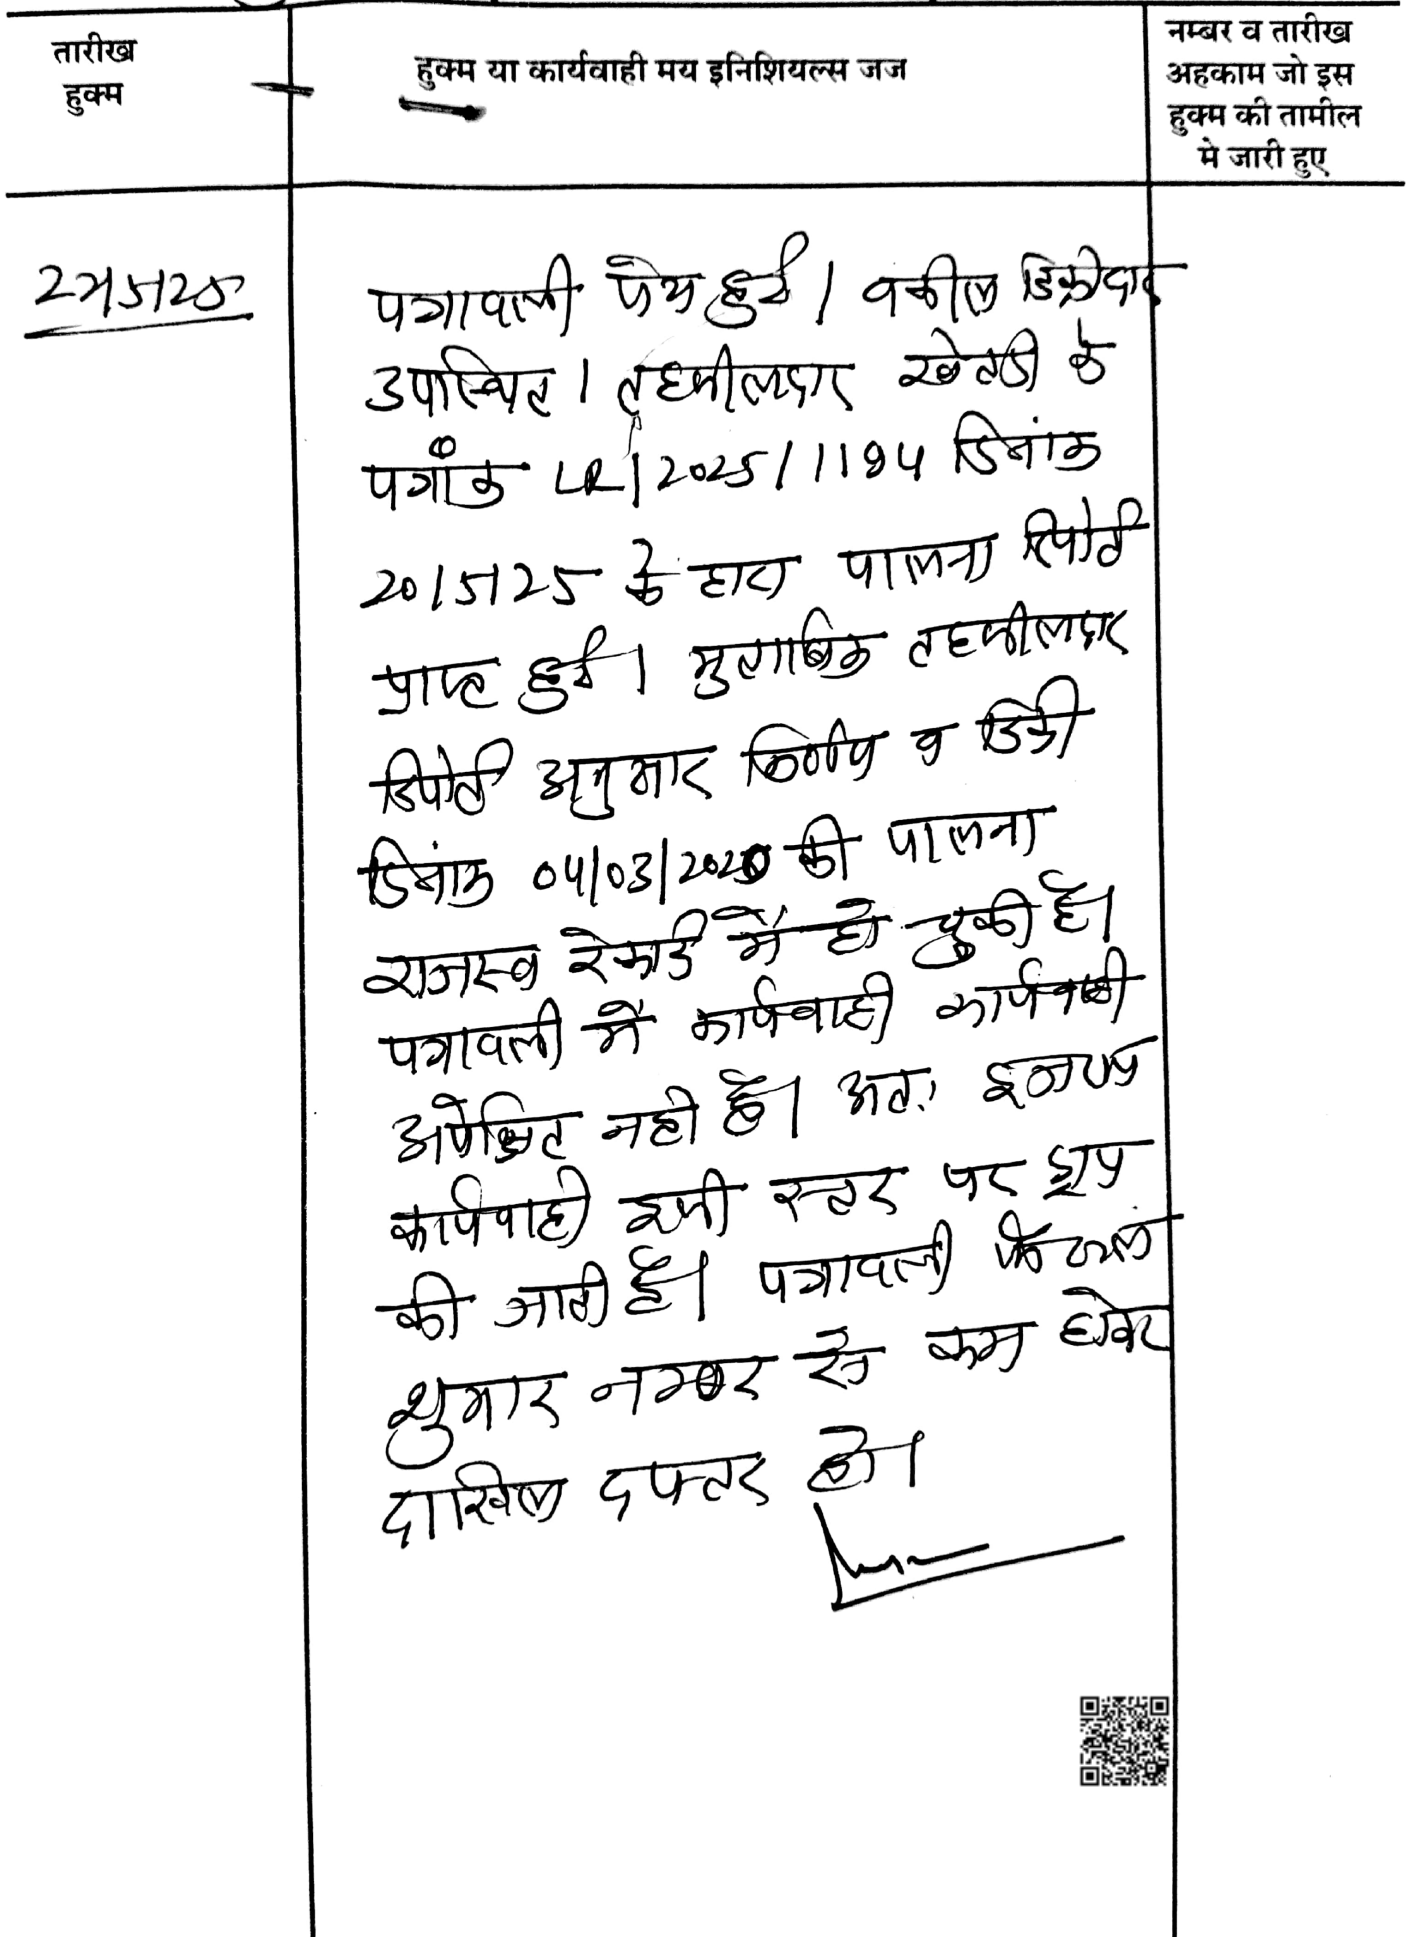 तारीख
हुक्म
हुक्म या कार्यवाही मय इनिशियल्स जज
नम्बर व तारीख
अहकाम जो इस
हुक्म की तामील
मे जारी हुए
पत्रावली पेश हुई। वकील डिक्रीदार
उपस्थित। तहसीलदार खेतडी के
पत्रांक LR/2025/1194 दिनांक
20/5/25 के द्वारा पालना रिपोर्ट
प्राप्त हुई। मुताबिक तहसीलदार
रिपोर्ट अनुसार निर्णय व डिक्री
दिनांक 04/03/2020 की पालना
राजस्व रेकार्ड में हो चुकी है।
पत्रावली में कार्यवाही कार्यवाही
अपेक्षित नही है। अतः इजराय
कार्यवाही इसी स्तर पर ड्राप
की जाती है। पत्रावली फैसल
शुमार नम्बर से कम होकर
दाखिल दफ्तर हो।